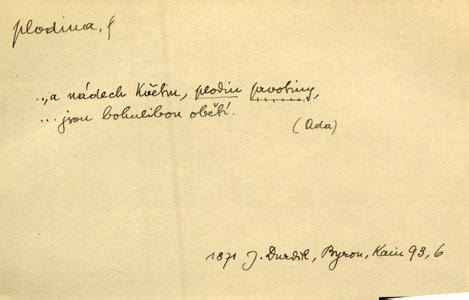 plodina, f
..,a nádech květin, plodin prvotiny,
... jsou bohulibou obětí.
(Ada)
1871 J. Durdík, Byron, Kain 93, 6